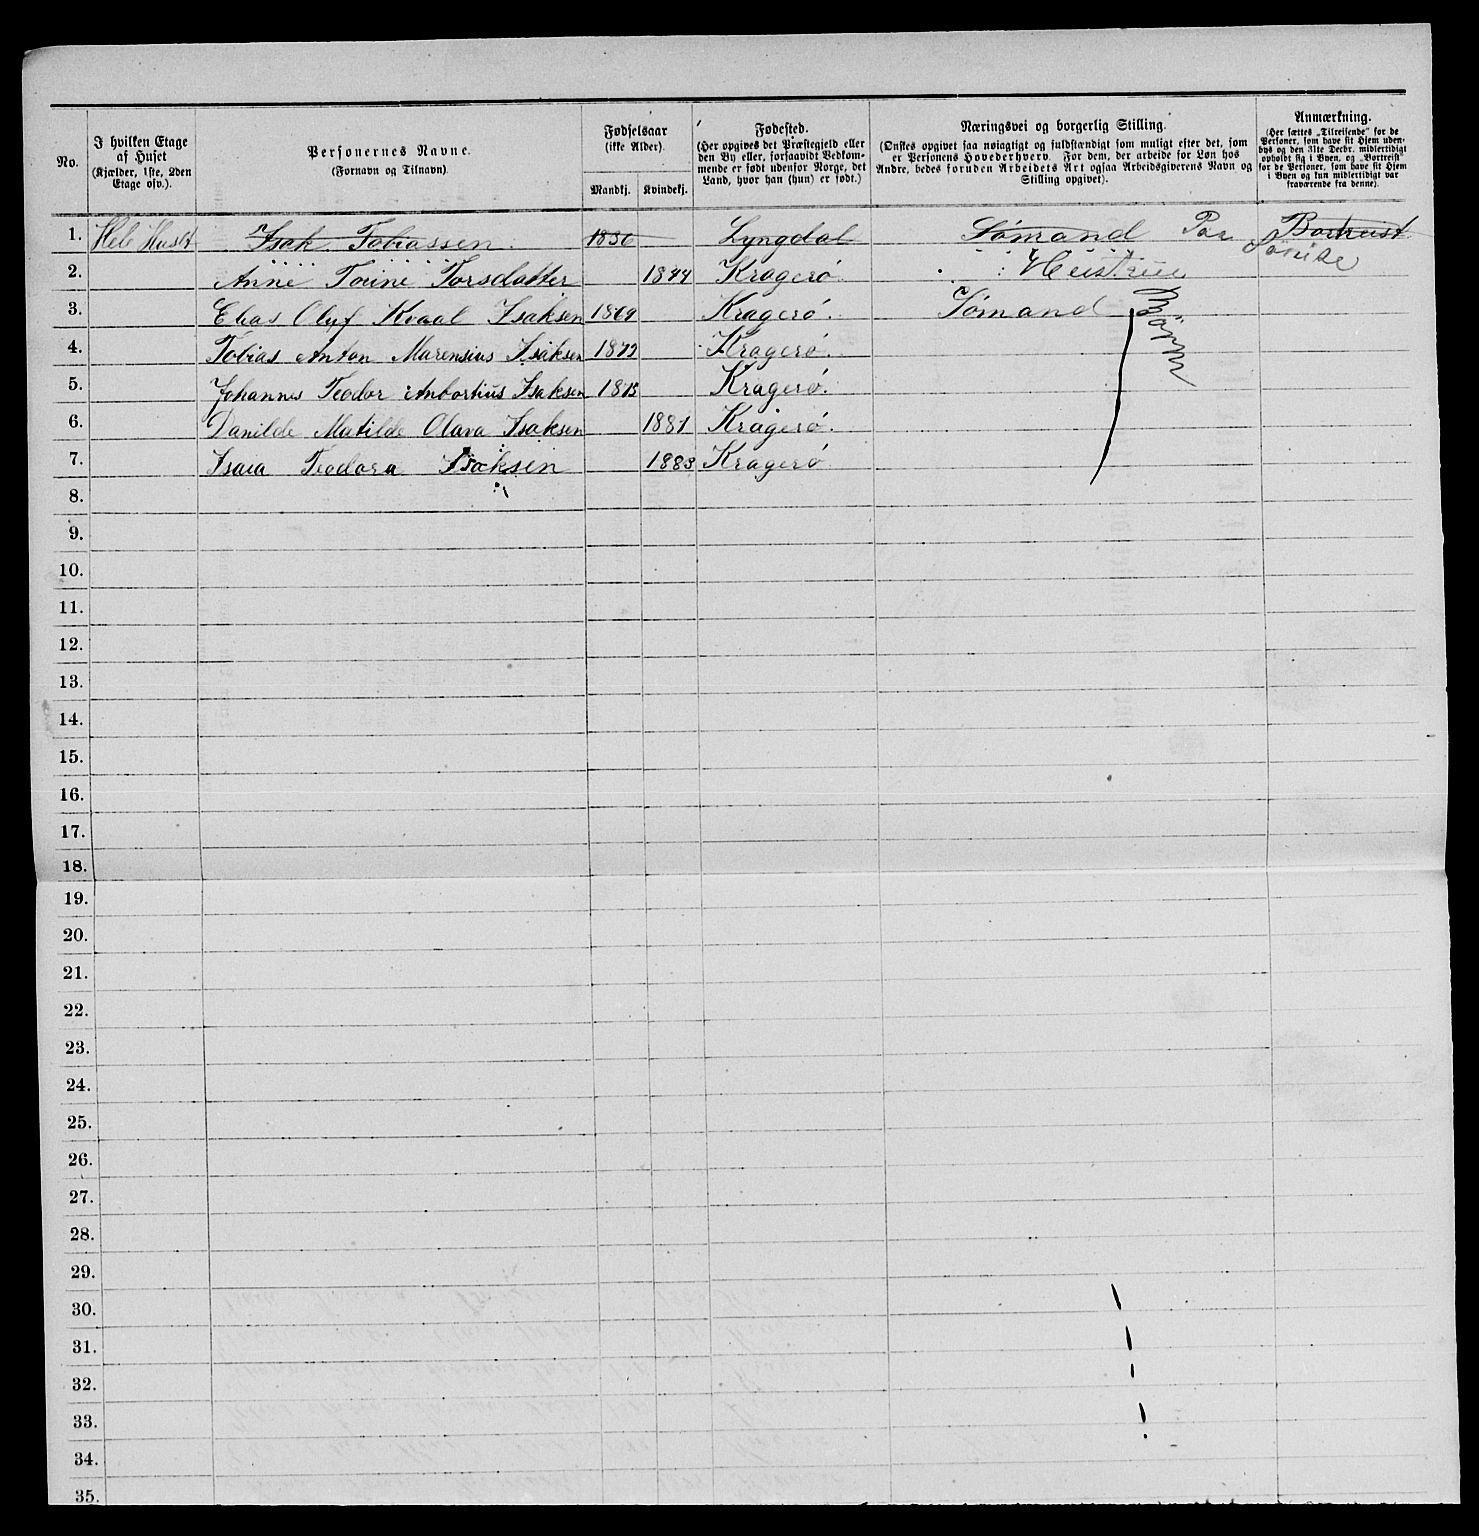 No.
I hvilken Etage af Huset (Kjælder, 1ste, 2den Etage osv.).
Personernes Navne. (Fornavn og Tilnavn)
Fødselsaar (ikke Alder). Mandkj. Kvindekj.
Fødested. (Her opgives det Præstegjeld eller den By eller, forsaavidt Vedkommende er født udenfor Norge, det Land, hvor han (hun) er født.)
Næringsvei og borgerlig Stilling. (Ønskes opgivet saa nøiagtigt og fuldstændigt som muligt efter det, som er Personens Hovederhverv. For dem, der arbeide for Løn hos Andre, bedes foruden Arbeidets Art ogsaa Arbeidsgiverens Navn og Stilling opgivet).
Anmærkning. (Her sættes „Tilreisende" for de Personer, som have sit Hjem udenbys og den 31te Decbr. midlertidigt opholdt sig i Byen, og „Bortreist" for de Personer, som have sit Hjem i Byen og kun midlertidigt var fraværende fra denne).
1. Hele Huset Isak Tobiassen 1836 Lyngdal Sømand Bortreist
2. Anne Torine Torsdatter 1844 Kragerø Hustrue
3. Elias Oluf Kvaal Isaksen 1869 Kragerø. Sømand Børn
4. Tobias Anton Marensius Isaksen 1872 Kragerø.
5. Johannes Teodor Isaksen Kragerø.
6. Danilde Matilde Olava Isaksen 1881 Kragerø.
7. Teodora Isaksen 1883 Kragerø
8.
9.
10.
11.
12.
13.
14.
15.
16.
17.
18.
19.
20.
21.
22.
23.
24.
25.
26.
27.
28.
29.
30.
31.
32.
33.
34.
35.